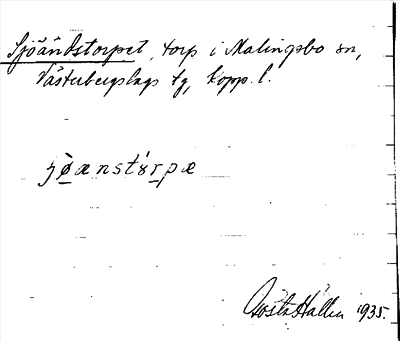 Sjöändstorpet, torp i Malingsbo sn,
Västerbergslags tg, Kopp. l.
jøænstɤ́rpæ
Gösta Hallén 1935.